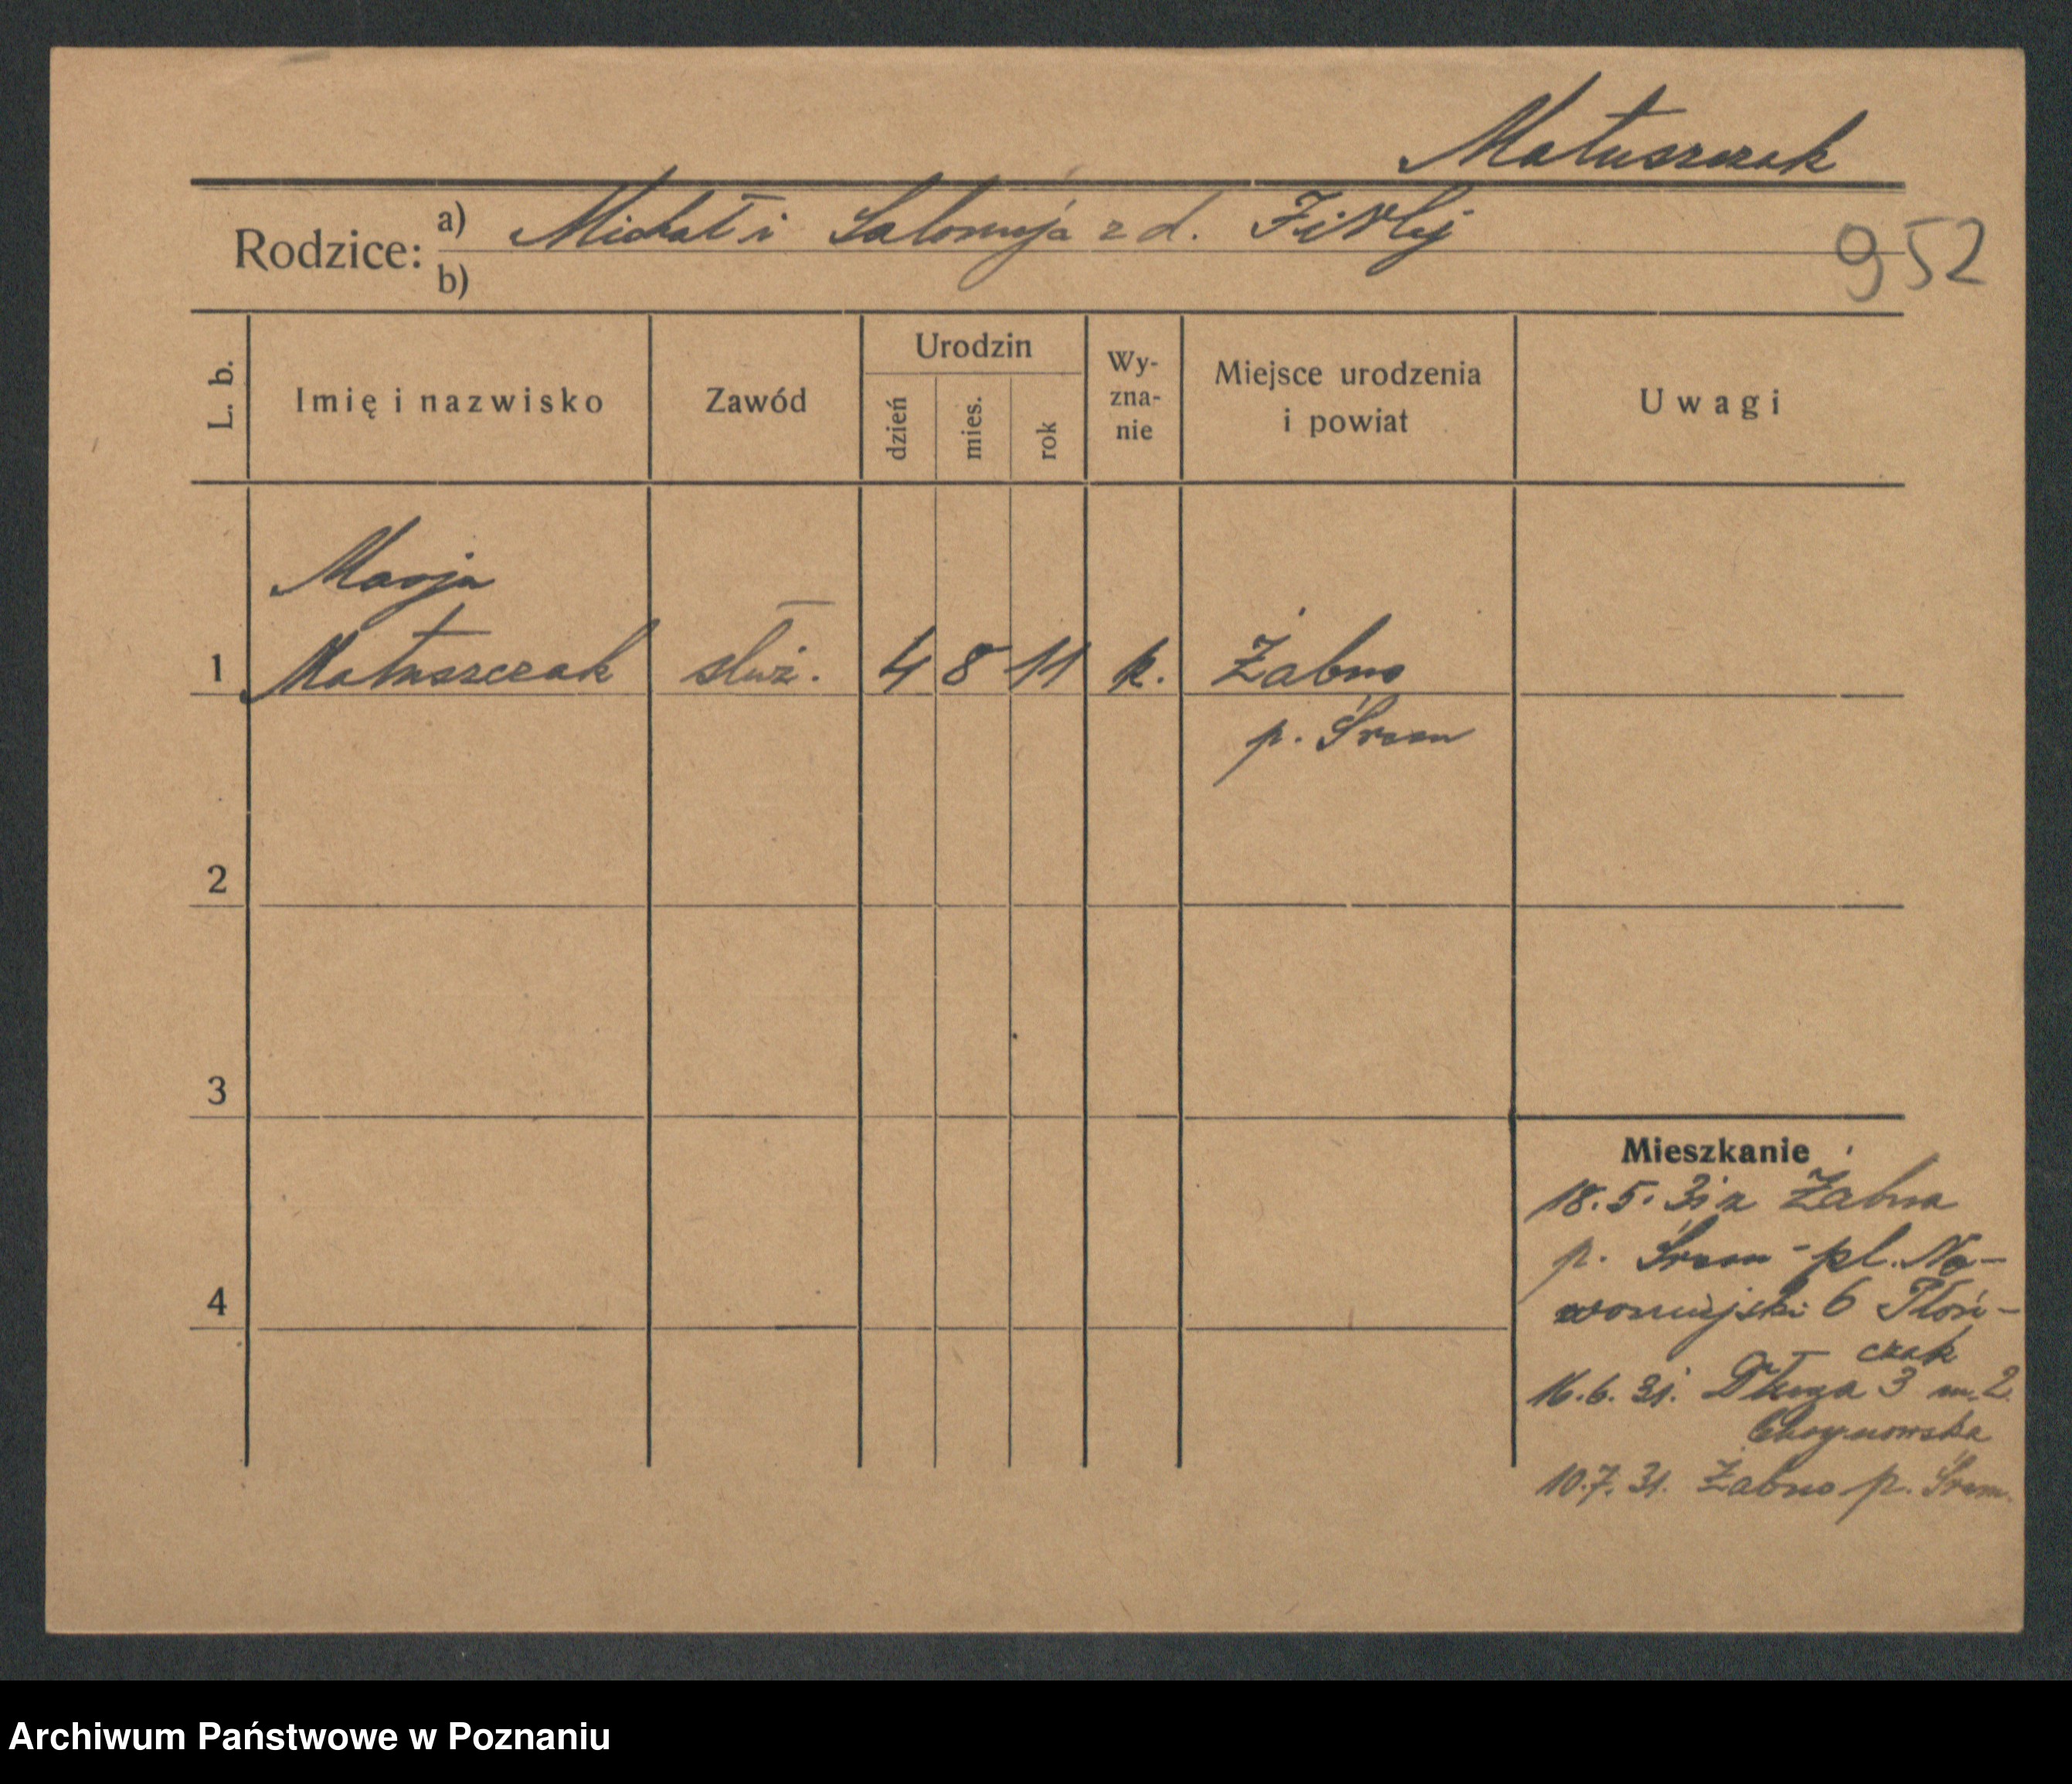 Matuszczak
Rodzice: a) Michał i Salomeja z d.
b)
952
L. b. Imię i nazwisko Zawód Urodzin dzień mies. rok Wy-zna-nie Miejsce urodzenia i powiat Uwagi
Marja
1 Matuszczak służ. 4 8 11 k. Żabno
p. Śrem
2
3
4
Mieszkanie
18.5.31 z Żabna
p. Śrem - pl. No-
womiejski 6 Płoń-
czak
16.6.31. Długa 3 m. 2.
Choynowska
10.7.31. Żabno p. Śrem.
Archiwum Państwowe w Poznaniu